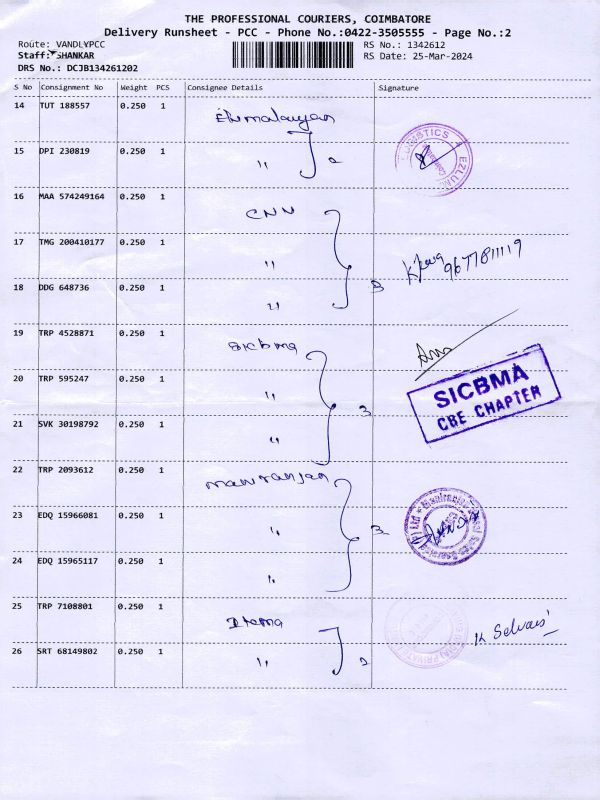 THE PROFESSIONAL COURIERS, COIMBATORE
Delivery Runsheet - PCC - Phone No.:0422-3505555 - Page No.:2
Route: VANDLYPCC
Staff: SHANKAR
DRS No.: DCJB134261202
RS No.: 1342612
RS Date: 25-Mar-2024
S No Consignment No Weight PCS Consignee Details Signature
14 TUT 188557 0.250 1
15 DPI 230819 0.250 1 "
LOGISTICS
16 MAA 574249164 0.250 1 CNN
17 TMG 200410177 0.250 1 "
9677811119
18 DDG 648736 0.250 1 " 3
19 TRP 4528871 0.250 1 Sicbma
20 TRP 595247 0.250 1 " 3
SICBMA
CBE CHAPTER
21 SVK 30198792 0.250 1 "
22 TRP 2093612 0.250 1
23 EDQ 15966081 0.250 1 "
24 EDQ 15965117 0.250 1 "
25 TRP 7108801 0.250 1
K Selvais
26 SRT 68149802 0.250 1 "